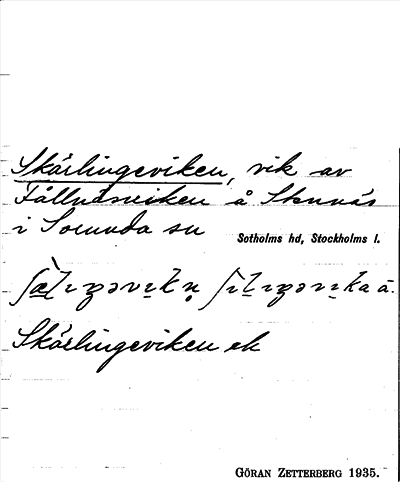 Skärlingeviken, vik av
Fållnäsviken å Stunäs
i Sorunda sn
Sotholms hd, Stockholms l.
Skärlingeviken ek
GÖRAN ZETTERBERG 1935.